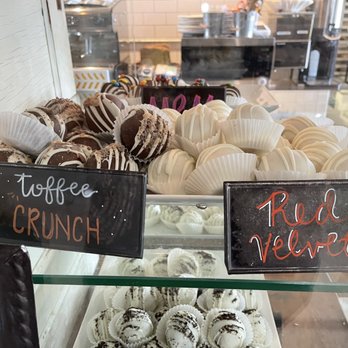 toffee
CRUNCH
Red
Velvet